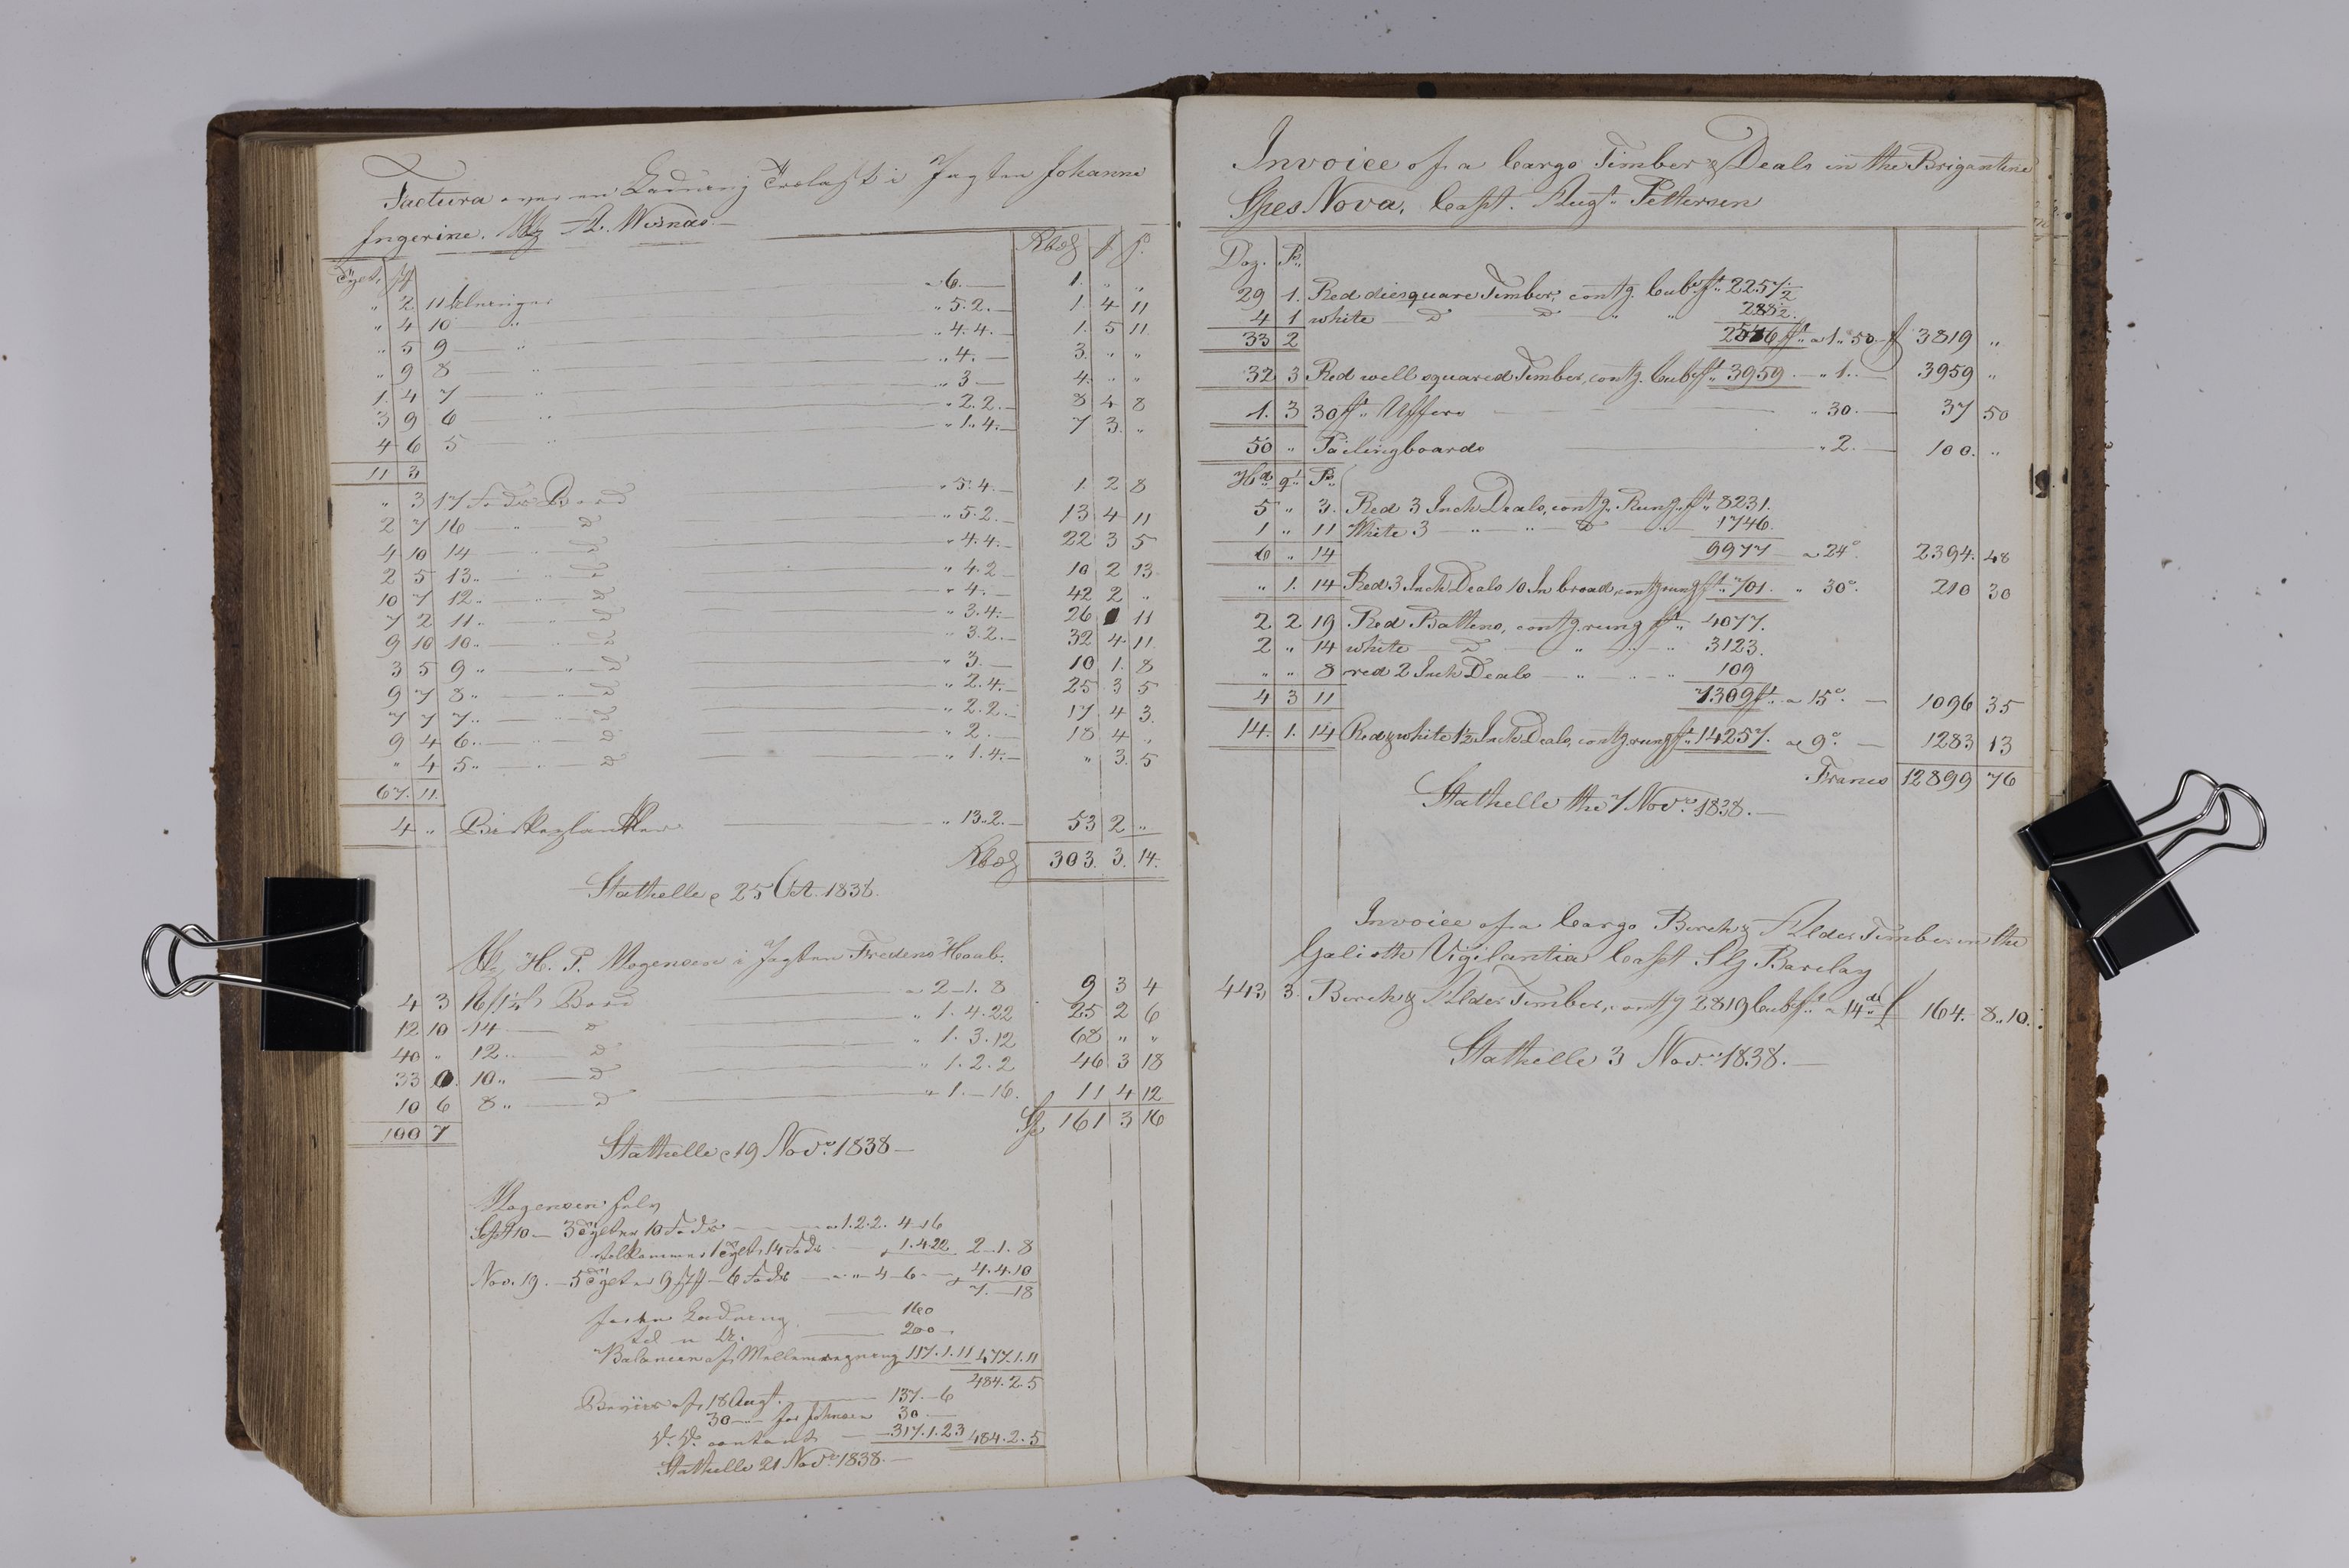 Factura over en Ladning Trælast i Jagten Johanne
Ingerine.
Tylt.
" 2 11 " 6. — 1. " "
" 4 10 — " " 5.2. — 1 4 11
" 5 9 — " " 4.4. — 1. 5 11
" 9 8 — " " 4. — 3. " "
1. 4 7 — " " 3 — 4. " "
3 9 6 " " 2.2. — 8 4 8
4 6 5 " " 1.4. — 7 3. "
11 3
" 3 17 Fods Bord " 5.4. — 1. 2 8
2 7 16 — " — d " 5.2. — 13 4 11
4 10 14 — " — d " 4.4. — 22 3 5
2 5 13.. — " — d " 4.2 — 10 2 13
10 7 12.. — " — d " 4. — 42 2 "
7 2 11.. — " — d " 3.4. — 26 11
9 10 10.. — " — d " 3.2. — 32 4 11
3 5 9 " — " — d " 3. — 10 1. 8
9 7 8 " — " — d " 2.4. — 25 3 5
7 7 7.. — " — d " 2.2. — 17 4 3.
9 4 6.. — " — d " 2. — 18 4 "
" 4 5 " — " — d " 1.4. — " 3. 5
67. 11.
4 " " 13.2. — 53 2 "
303. 3. 14.
Stathelle 25 Oct. 1838.
H. P. Mogensen i Jagten Fredens Haab.
4 3 16 Bord a 2 — 1. 8 9 3 4
12 10 14 — d " 1. 4. 22 25 2 6
40 " 12.. — d " 1. 3. 12 68 " "
33 10.. — d " 1. 2. 2 46 3 18
10 6 8.. — d " 1. — 16. 11 4 12
100 7 161 3 16
Stathelle 19 Novr. 1838 —
Mogensen
Sept 10 — 3 Tylter 10 Fods — a 1.2.2. 4 — 6
14 Fods 1.4.22 2 — 1. 8
Nov. 19. — 5 Tylter 9 — 6 Fods — a " 4 — 6 — 4.4.10
7. — 18
Ladning — 160
200 —
Balancen af 117.1.11 477.1.11
484.2.5
af 18 Augt. — 137. — 6
30 — for Johnsen 30. —
contant — 317.1.23 484.2.5
Stathelle 21 Novr. 1838. —
Invoice of a Cargo Timber & Deals in the Brigantine
Spes Nova, Capt. Augt. Pettersen
Doz. Ps.
29 1. Red diesquare Timber, contg. Cubft. 2257 1/2
4 1 white — d — d " " 288 1/2.
33 2 2546 ft. a 1. 50. f 3819 "
32 3 Red well squared Timber, contg. Cubft. 3959. — " 1. — 3959 "
1. 3 30 ft. Uffers — " 30. — 37 50
50 " Palingboards — " 2. — 100. "
Hd. qr. Ps.
5 " 3. Red 3 Inch Deals, contg. Rung. ft. 8231.
1 " 11 White 3 — " " d " 1746.
6 " 14 9977 — a 24c. 2394. 48
" 1. 14 Red 3 Inch Deals 10 In broad, contg rung ft. 701. " 30c. 210 30
2 2 19 Red Battens, contg. rung ft. 4077.
2 " 14 white — d — " " " 3123.
" " 8 red 2 Inch Deals — " — " 109
4 3 11 7309 ft. a 15c. — 1096 35
14. 1. 14 Red & white 1 1/2 Inch Deals, contg. rung ft. 14257. a 9c. — 1283 13
Francs 12899 76
Stathelle the 7 Novr. 1838. —
Invoice of a Cargo Birch & Alder Timber in the
Galioth Vigilantia Capt Barclay
443 3. Birch & Alder Timber, contg 2819 Cubft. a 14 d. £ 164. — 8.. 10.
Stathelle 3 Novr. 1838. —